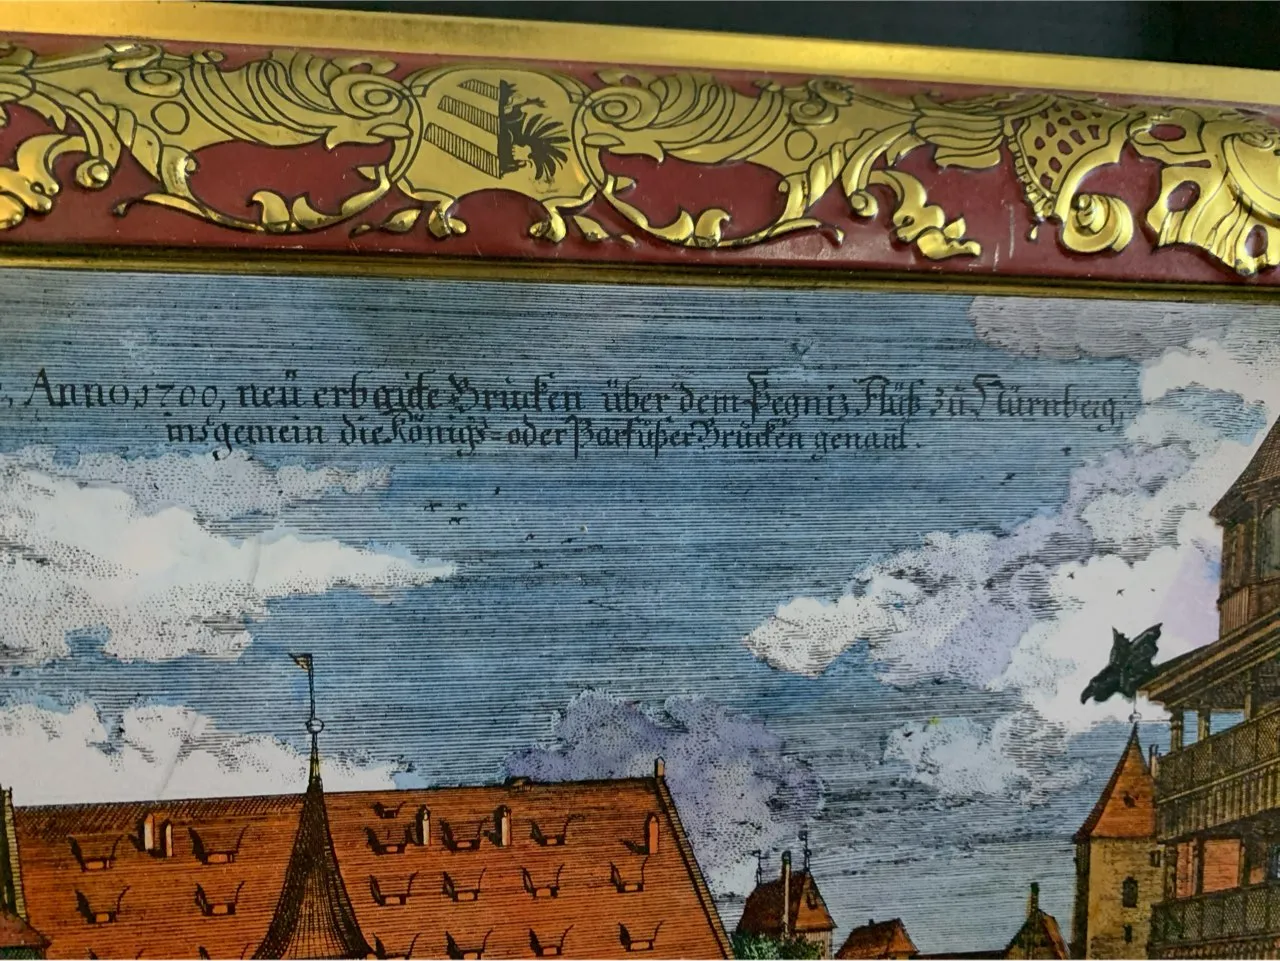 Anno 1700, neü erbaute Brucken über dem Pegniz Flüß zü Nürnberg,
insgemein die Königs= oder Parfüßer Brucken genant.